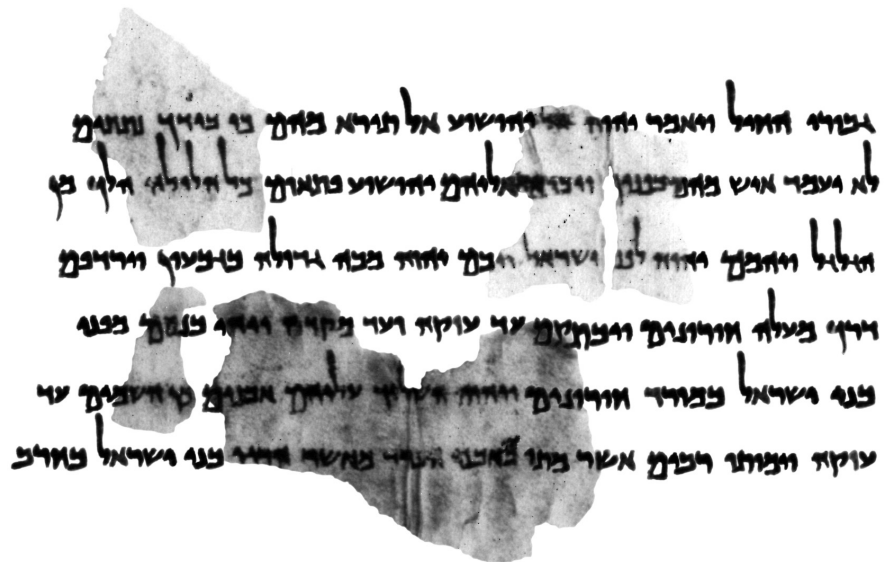 גבורי החיל ויאמר יהוה אל יהושוע אל תירא מהם כי בידך נתתים
לא יעמד איש מהם בפניך ויבוא אליהם יהושוע פתאום כל הלילה הלך מן
הגלגל ויהמם יהוה לפני ישראל ויכם יהוה מכה גדולה בגבעון וירדפם
דרך מעלה חורונים עד עזקה ועד מקדה ויהי בנסם מפני
בני ישראל במורד חורונים ויהוה השליך עליהם אבנים מן השמים עד
עזקה וימותו רבים אשר מתו באבני הברד מאשר הרגו בני ישראל בחרב